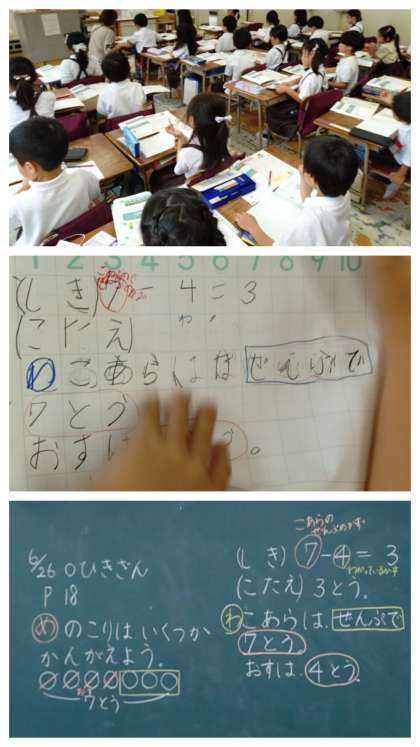 1 2 3 4 5 6 7 8 9 10
(しき) 7 - 4 = 3
(こたえ)
わ こあらは ぜんぶで
7とう
おすは
6/26 ○ひきざん
P 18
め のこりは いくつか
かんがえよう。
おす
7とう
こあらの
ぜんぶのかず
(しき) 7 - 4 = 3
わかっているかず
(こたえ) 3とう。
わ こあらは、ぜんぶで
7とう。
おすは、4とう。